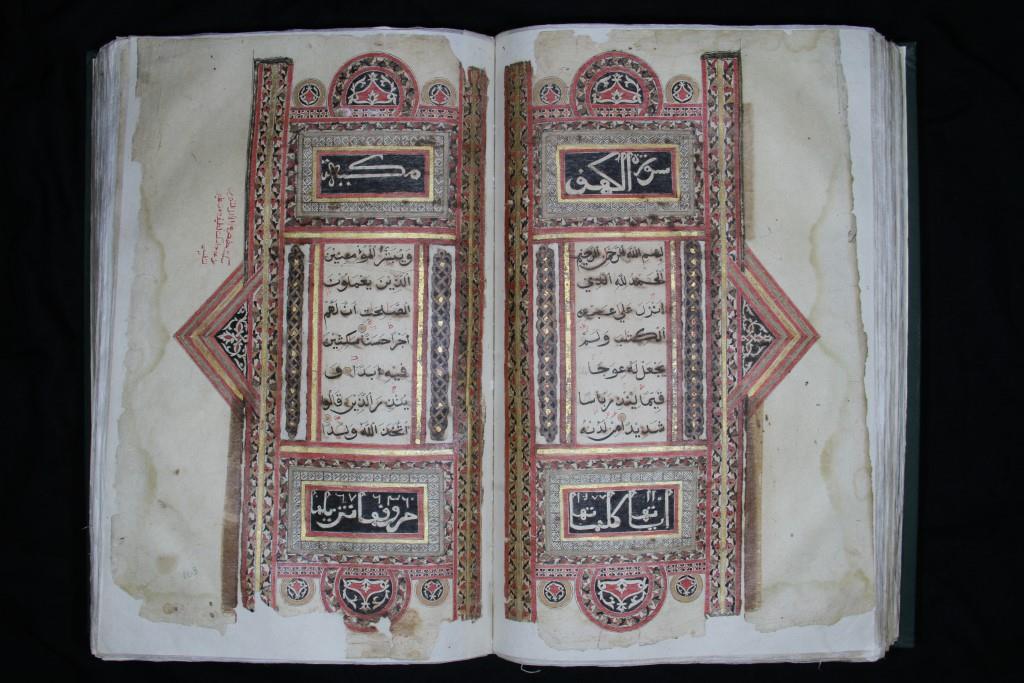 سورة الكهف
بسم الله الرحمن الرحيم
الحمد لله الذي
انزل على عبده
الكتب ولم
يجعل له عوجا
قيما لينذر باسا
شديدا من لدنه
اياتها كلماتها
مكية
ويبشر المؤمنين
الذين يعملون
الصلحت ان لهم
اجرا حسنا مكثين
فيه ابدا و
ينذر الذين قالوا
اتخذ الله ولدا
حروفها تنزيلها